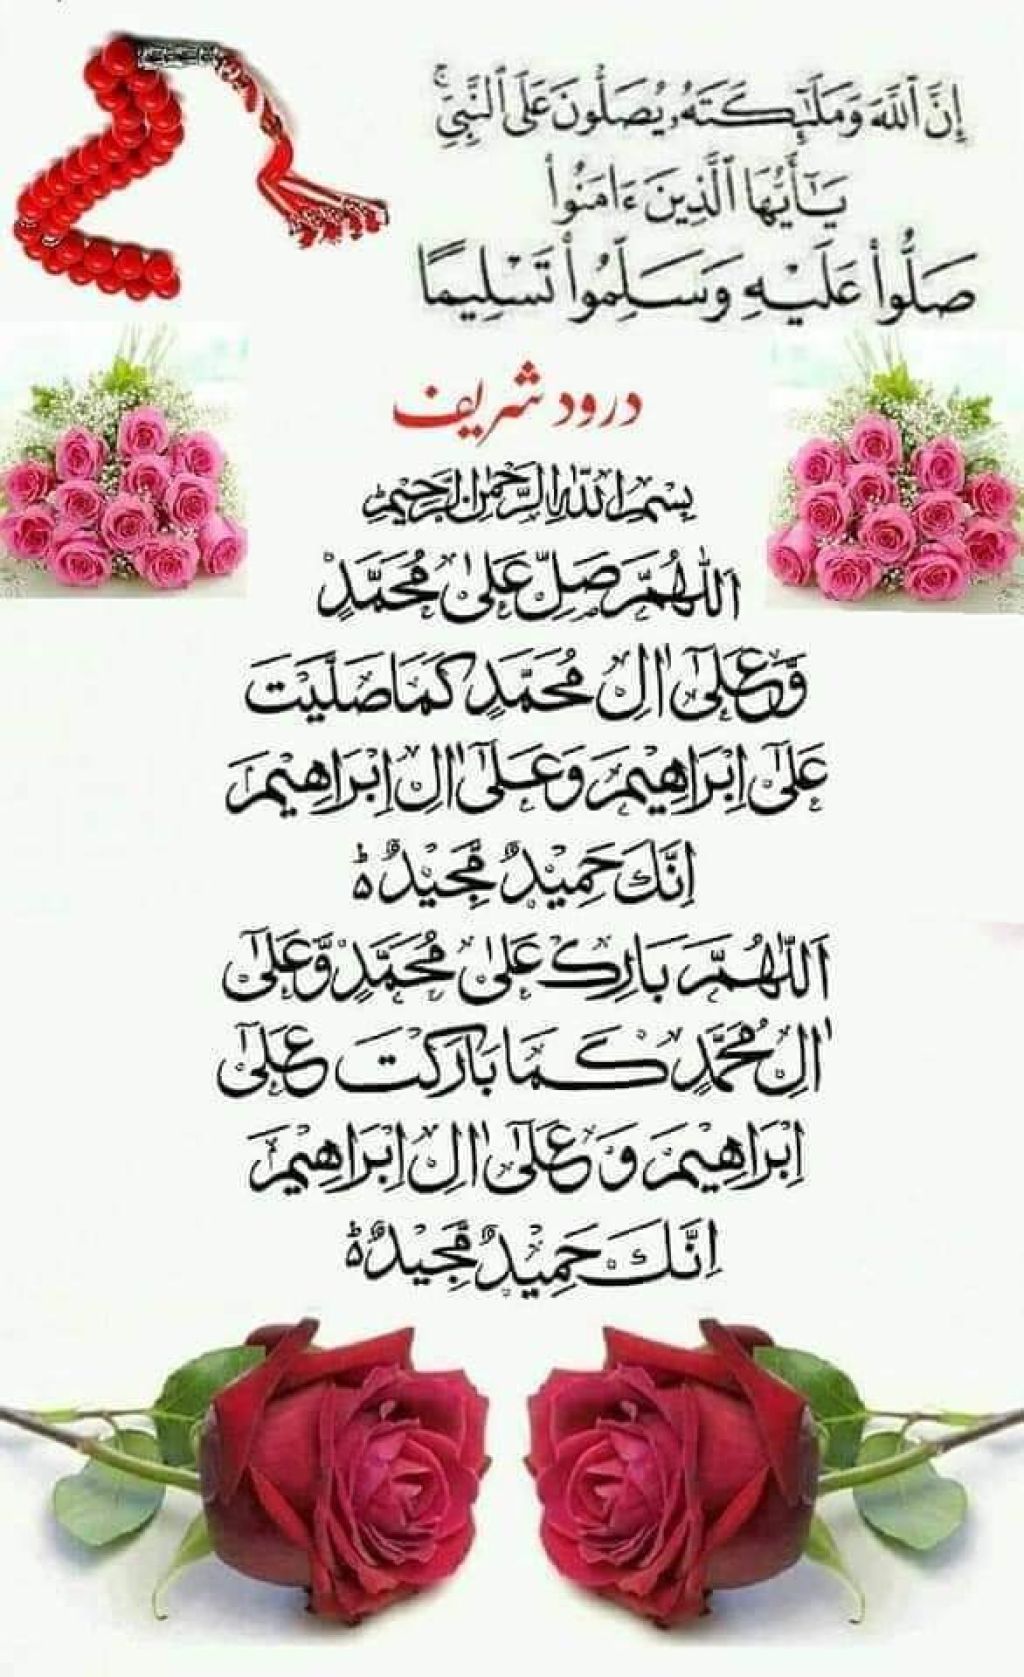 إِنَّ ٱللَّهَ وَمَلَٰٓئِكَتَهُۥ يُصَلُّونَ عَلَى ٱلنَّبِيِّ ۚ
يَٰٓأَيُّهَا ٱلَّذِينَ ءَامَنُوا۟
صَلُّوا۟ عَلَيْهِ وَسَلِّمُوا۟ تَسْلِيمًا
درود شریف
بِسْمِ اللّٰهِ الرَّحْمٰنِ الرَّحِيْمِ
اَللّٰهُمَّ صَلِّ عَلٰى مُحَمَّدٍ
وَّعَلٰٓى اٰلِ مُحَمَّدٍ كَمَا صَلَّيْتَ
عَلٰٓى اِبْرَاهِيْمَ وَعَلٰٓى اٰلِ اِبْرَاهِيْمَ
اِنَّكَ حَمِيْدٌ مَّجِيْدٌ ؕ
اَللّٰهُمَّ بَارِكْ عَلٰى مُحَمَّدٍ وَّعَلٰٓى
اٰلِ مُحَمَّدٍ كَمَا بَارَكْتَ عَلٰٓى
اِبْرَاهِيْمَ وَعَلٰٓى اٰلِ اِبْرَاهِيْمَ
اِنَّكَ حَمِيْدٌ مَّجِيْدٌ ؕ